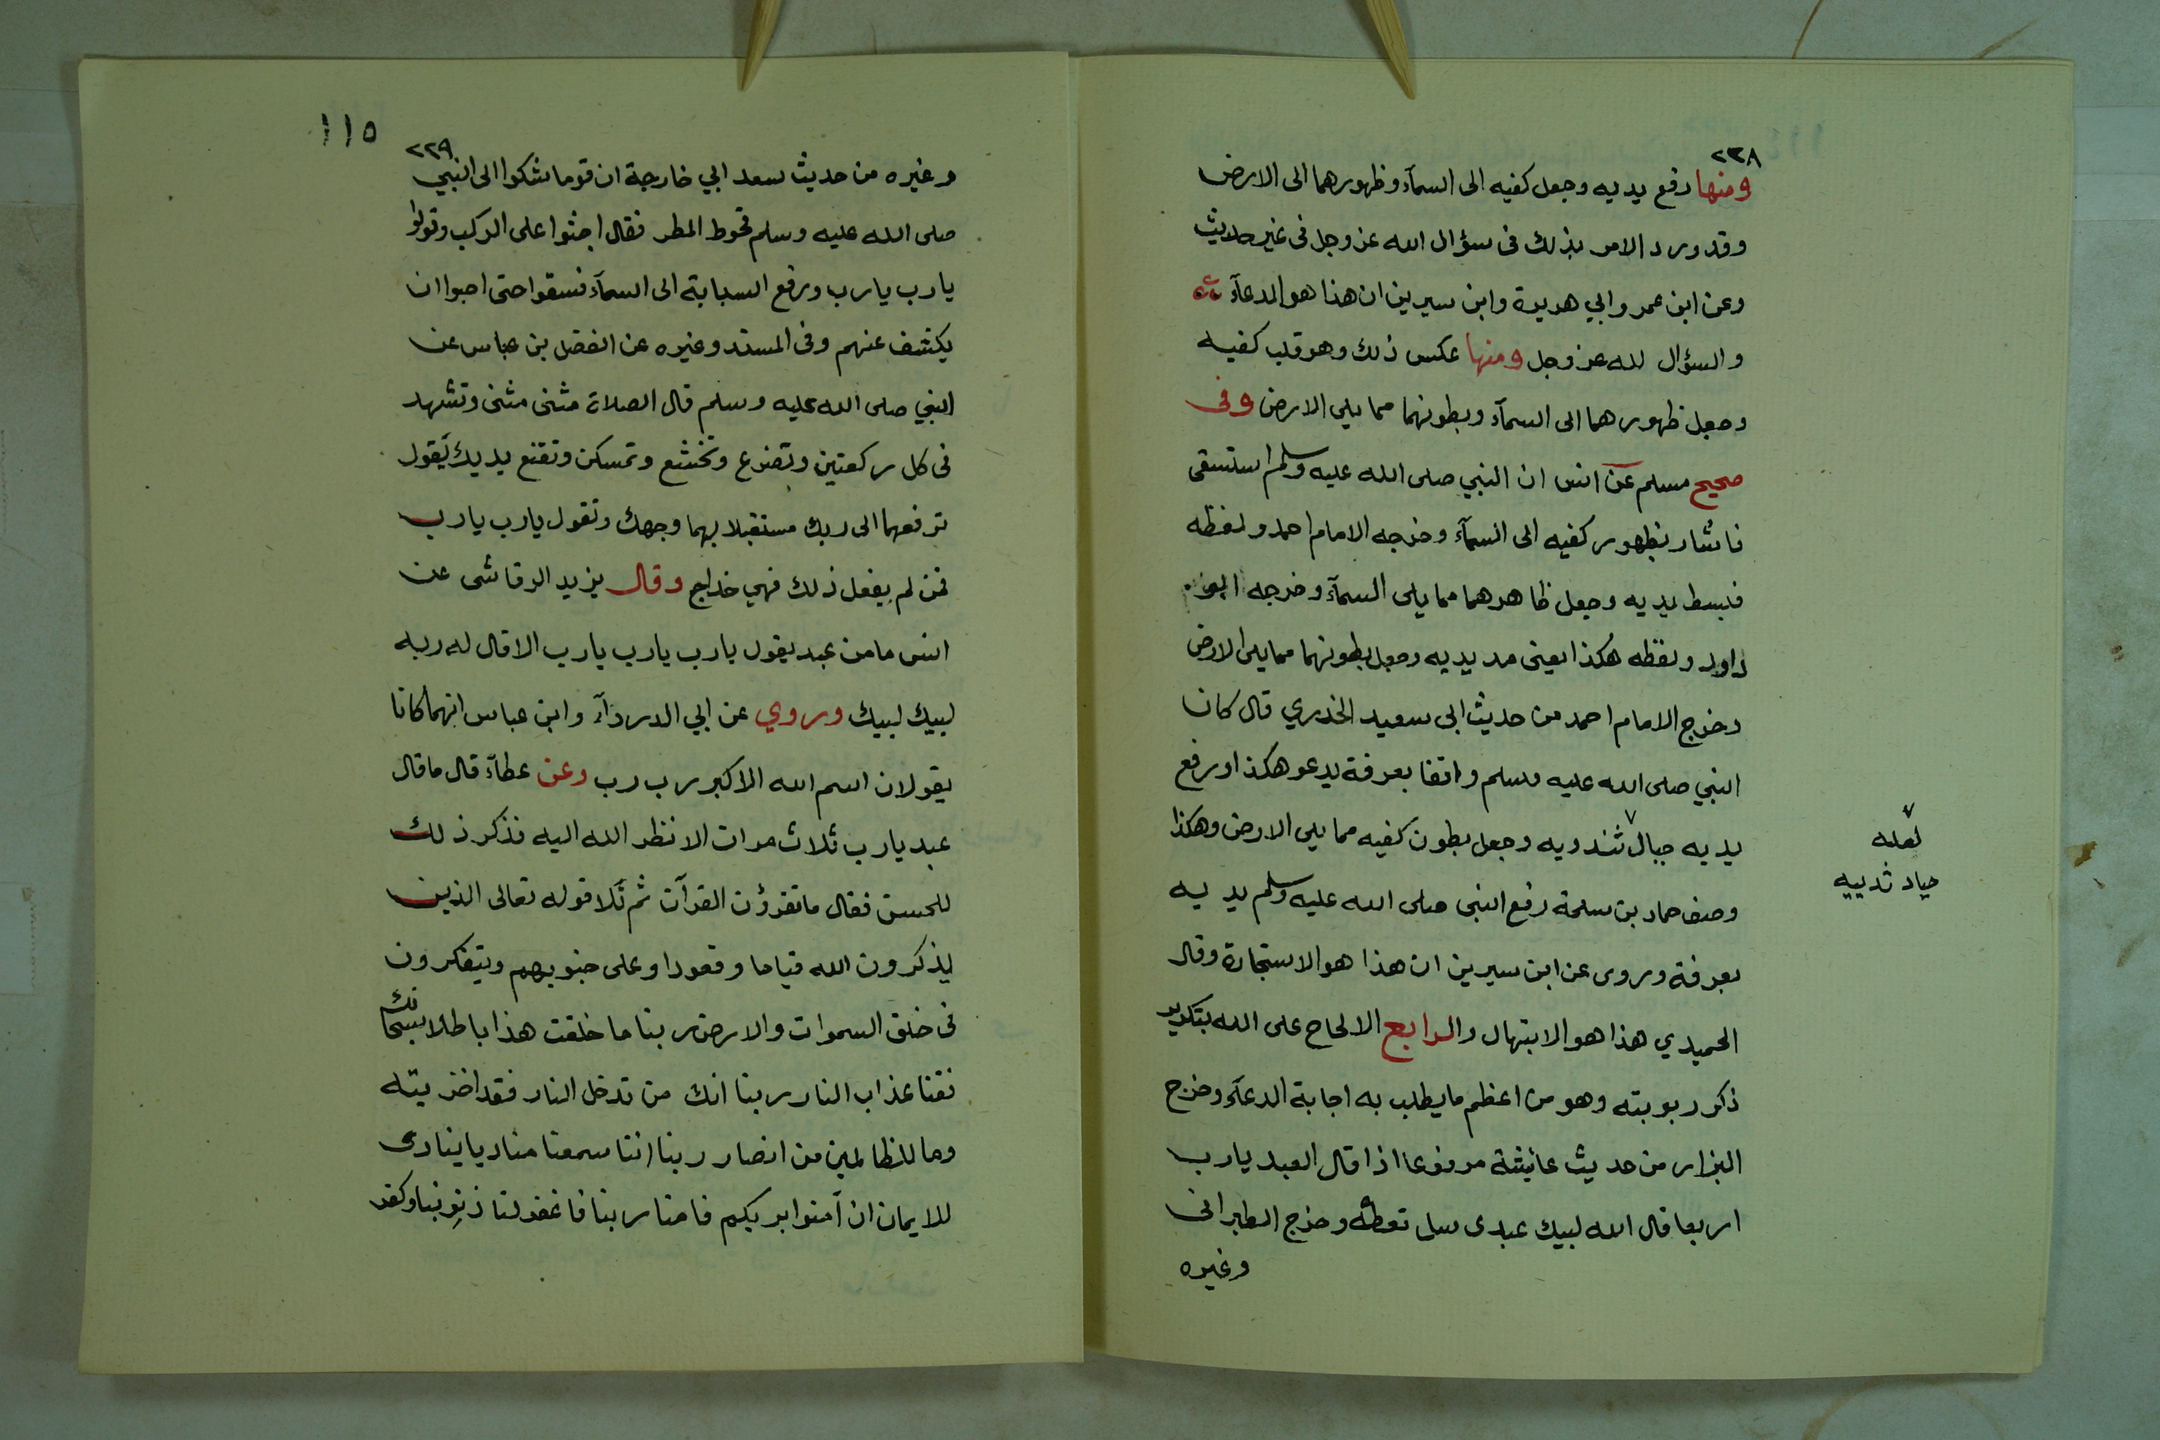 ٢٣٨
ومنها رفع يديه وجعل كفيه الى السمآء وظهورهما الى الارض
وقد ورد الامر بذلك فى سؤال الله عز وجل فى غير حديث
وعن ابن عمر وابي هريرة وابن سيرين ان هذا هو الدعآء
والسؤال لله عز وجل ومنها عكس ذلك وهو قلب كفيه
وجعل ظهورهما الى السمآء وبطونهما مما يلى الارض وفى
صحيح مسلم عن انس ان النبي صلى الله عليه وسلم استسقى
فاشار بظهور كفيه الى السمآء وخرجه الامام احمد ولفظه
فبسط يديه وجعل ظاهرهما مما يلى السمآء وخرجه ابو
داود ولفظه هكذا يعنى مد يديه وجعل بطونهما مما يلى الارض
وخرج الامام احمد من حديث ابى سعيد الخدري قال كان
النبي صلى الله عليه وسلم واقفا بعرفة يدعو هكذا ورفع
يديه حبال ثندويه وجعل بطون كفيه مما يلى الارض وهكذا
لعله
حياد ثدييه
وصف حماد بن سلمة رفع النبى صلى الله عليه وسلم يديه
بعرفة وروى عن ابن سيرين ان هذا هو الاستجارة وقال
الحميدي هذا هو الابتهال والرابع الالحاح على الله بتكرير
ذكر ربوبيته وهو من اعظم ما يطلب به اجابة الدعآء وخرج
البزار من حديث عائشة مرفوعا اذا قال العبد يارب
اربعا قال الله لبيك عبدى سلى تعطه وخرج الطبرانى
وغيره
١١٥
٢٢٩
وغيره من حديث سعد ابي خارجة ان قوما شكوا الى النبي
صلى الله عليه وسلم قحوط المطر فقال اجثوا على الركب وقولوا
يارب يارب ورفع السبابة الى السمآء فسقوا حتى احبوا ان
يكشف عنهم وفى المسند وغيره عن الفضل بن عباس عن
النبي صلى الله عليه وسلم قال الصلاة مثنى مثنى وتشهد
فى كل ركعتين وتضرع وتخشع وتمسكن وتقنع يديك يقول
ترفعهما الى ربك مستقبلا بهما وجهك وتقول يارب يارب
فمن لم يفعل ذلك فهي خداج وقال يزيد الرقاشى عن
انس ما من عبد يقول يارب يارب يارب الا قال له ربه
لبيك لبيك وروي عن ابي الدردآء وابن عباس انهما كانا
يقولان اسم الله الاكبر رب رب وعن عطآء قال ما قال
عبد يارب ثلاث مرات الا نظر الله اليه فذكر ذلك
للحسن فقال ما تقرؤن القرآن ثم تلا قوله تعالى الذين
يذكرون الله قياما وقعودا وعلى جنوبهم ويتفكرون
فى خلق السموات والارض ربنا ما خلقت هذا باطلا سبحانك
فقنا عذاب النار ربنا انك من تدخل النار فقد اخزيته
وما للظالمين من انصار ربنا اننا سمعنا مناديا ينادى
للايمان ان آمنوا بربكم فامنا ربنا فاغفر لنا ذنوبنا وكفر